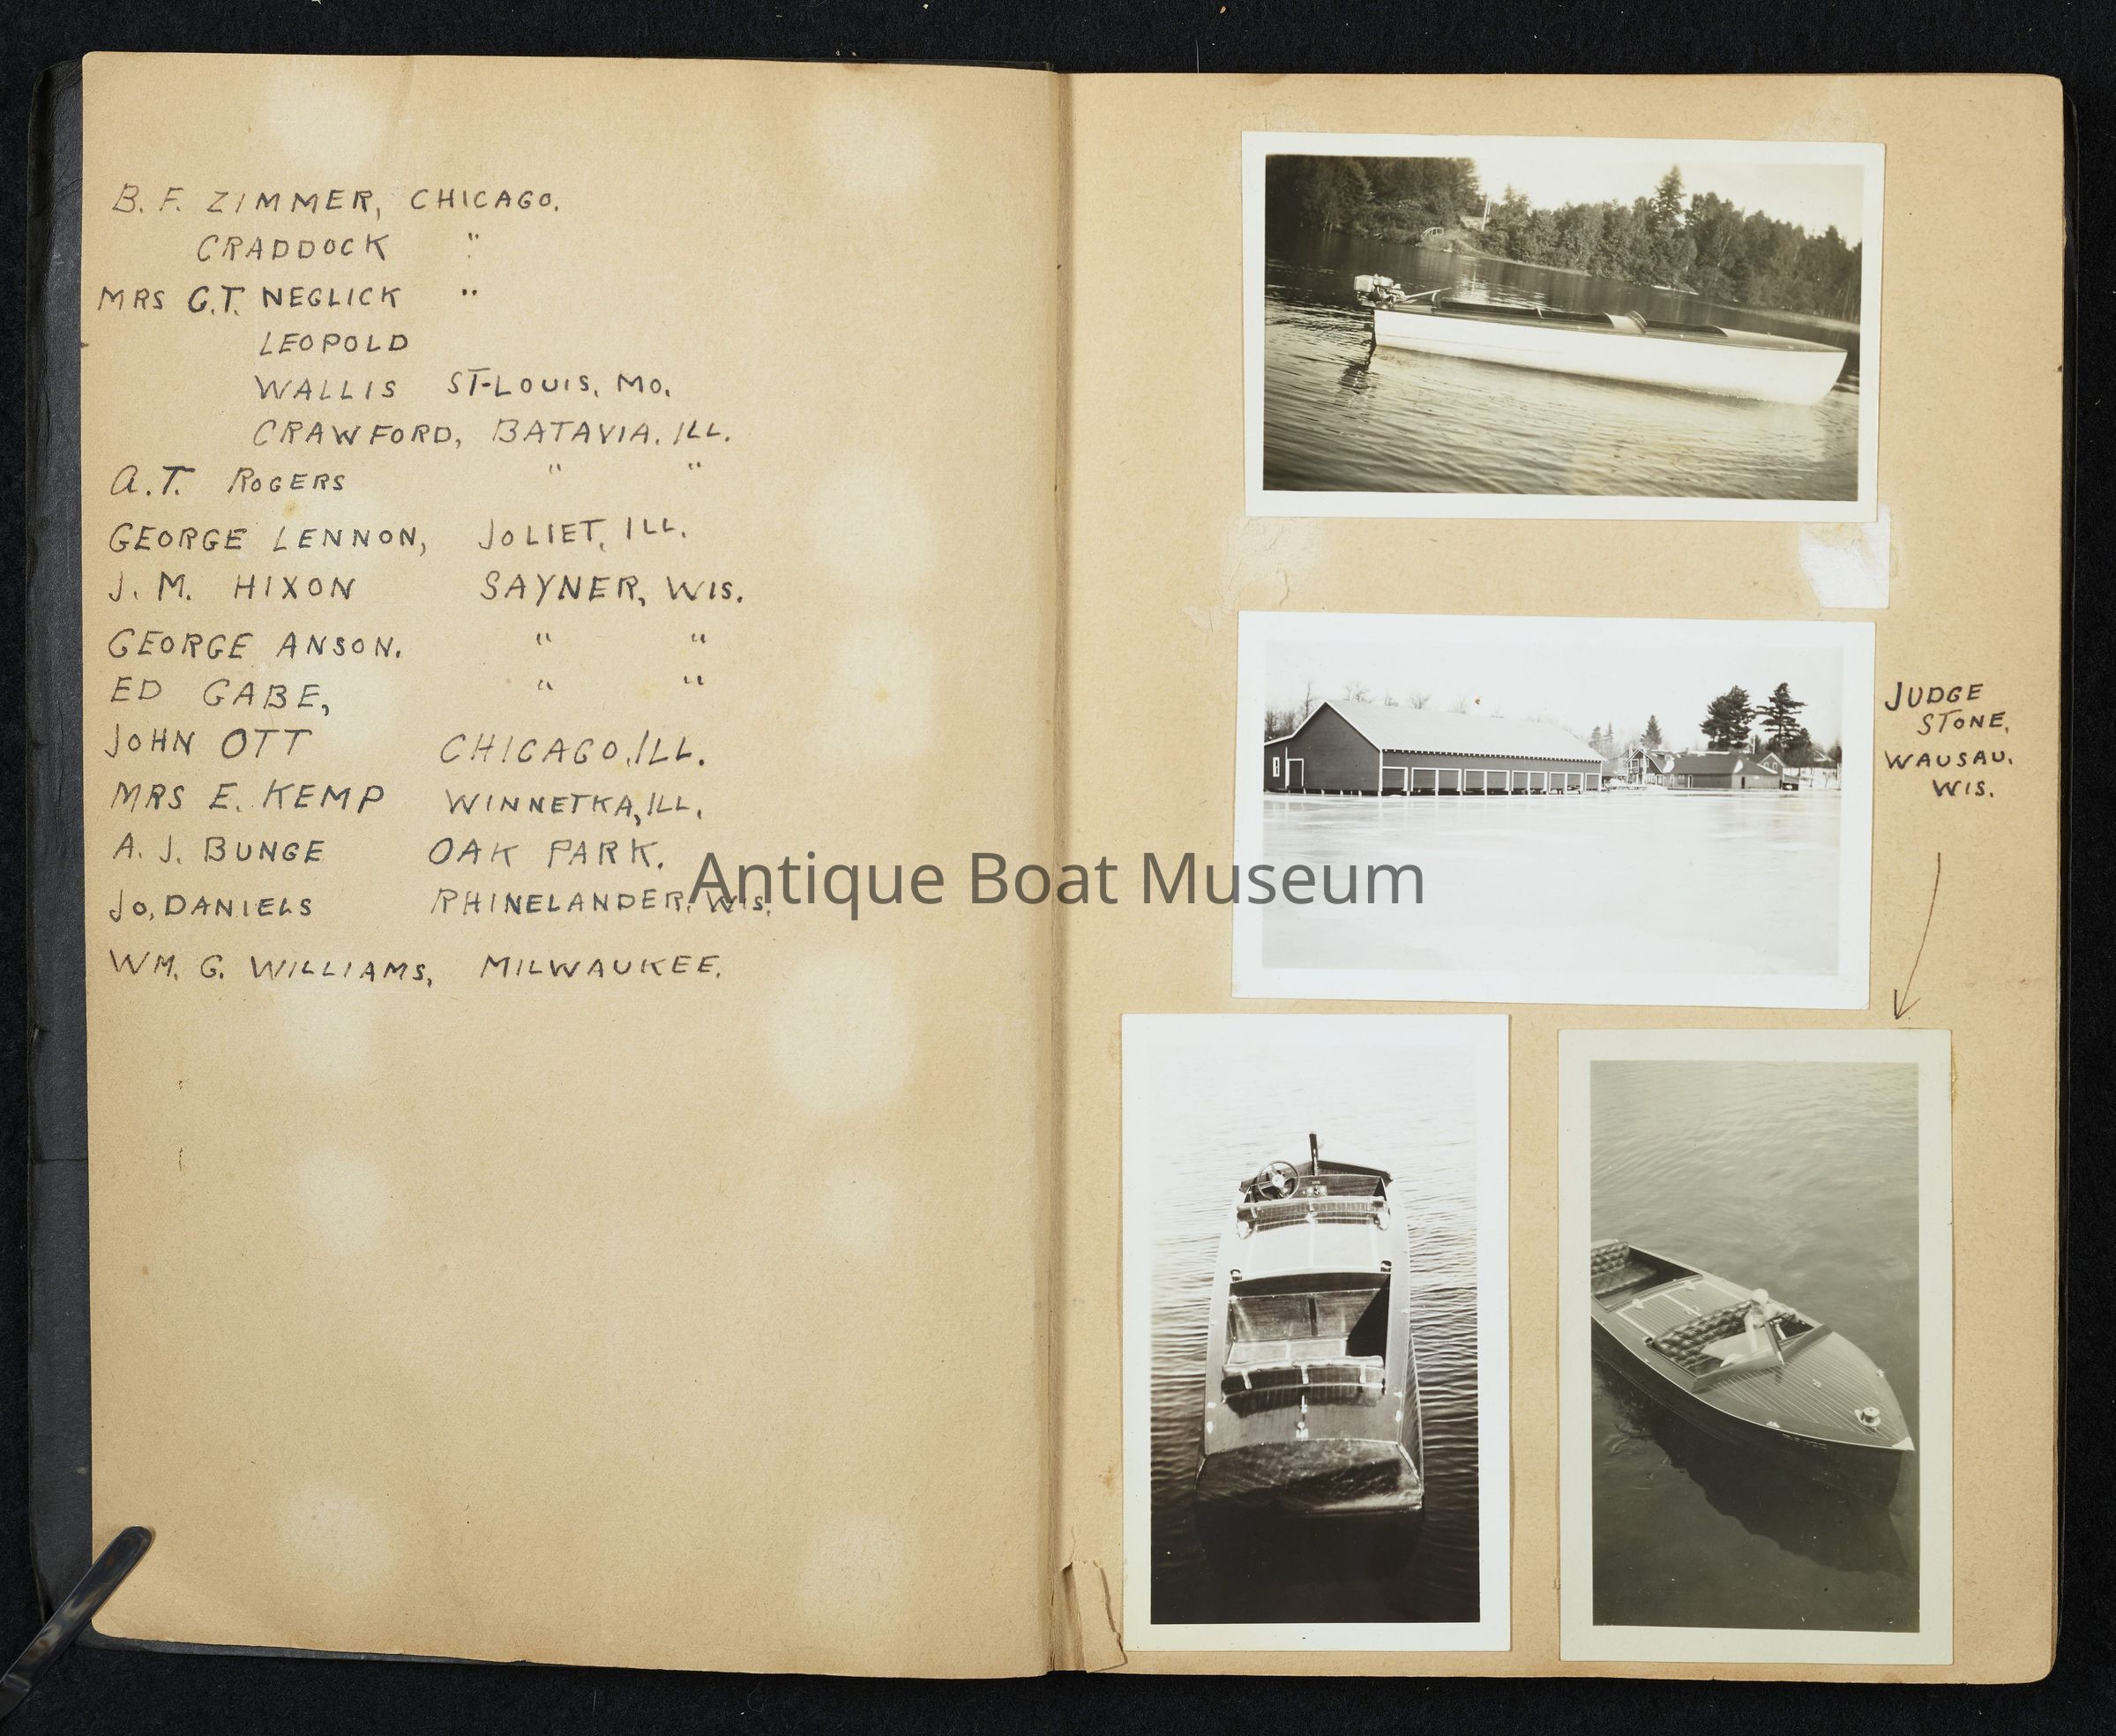 B. F. ZIMMER, CHICAGO.
CRADDOCK "
MRS G.T. NEGLICK "
LEOPOLD
WALLIS ST-LOUIS, MO.
CRAWFORD, BATAVIA. ILL.
A.T. ROGERS " "
GEORGE LENNON, JOLIET, ILL.
J. M. HIXON SAYNER, WIS.
GEORGE ANSON. " "
ED GABE, " "
JOHN OTT CHICAGO, ILL.
MRS E. KEMP WINNETKA, ILL.
A. J. BUNGE OAK PARK.
JO, DANIELS RHINELANDER, WIS.
WM. G. WILLIAMS, MILWAUKEE.
Antique Boat Museum
JUDGE
STONE,
WAUSAU.
WIS.